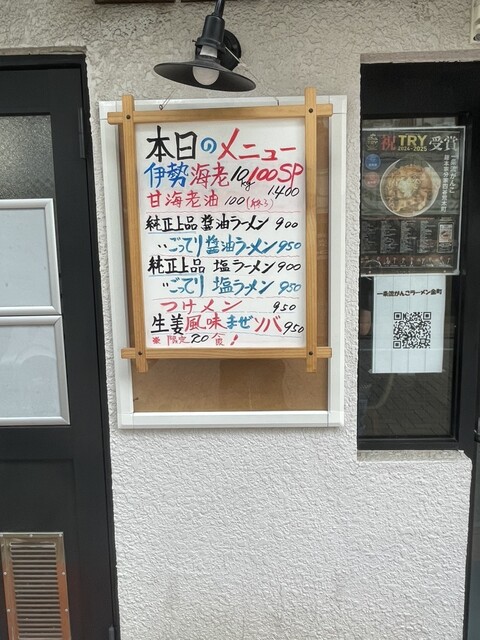 本日のメニュー
伊勢海老10kg100SP
1400
甘海老油 100(終了)
純正上品 醤油ラーメン 900
〃ごってり醤油ラーメン950
純正上品 塩ラーメン900
〃ごってり 塩ラーメン 950
つけメン 950
生姜風味まぜソバ950
※限定20食!
祝 TRY 受賞
2024-2025
一条流がんこラーメン金町